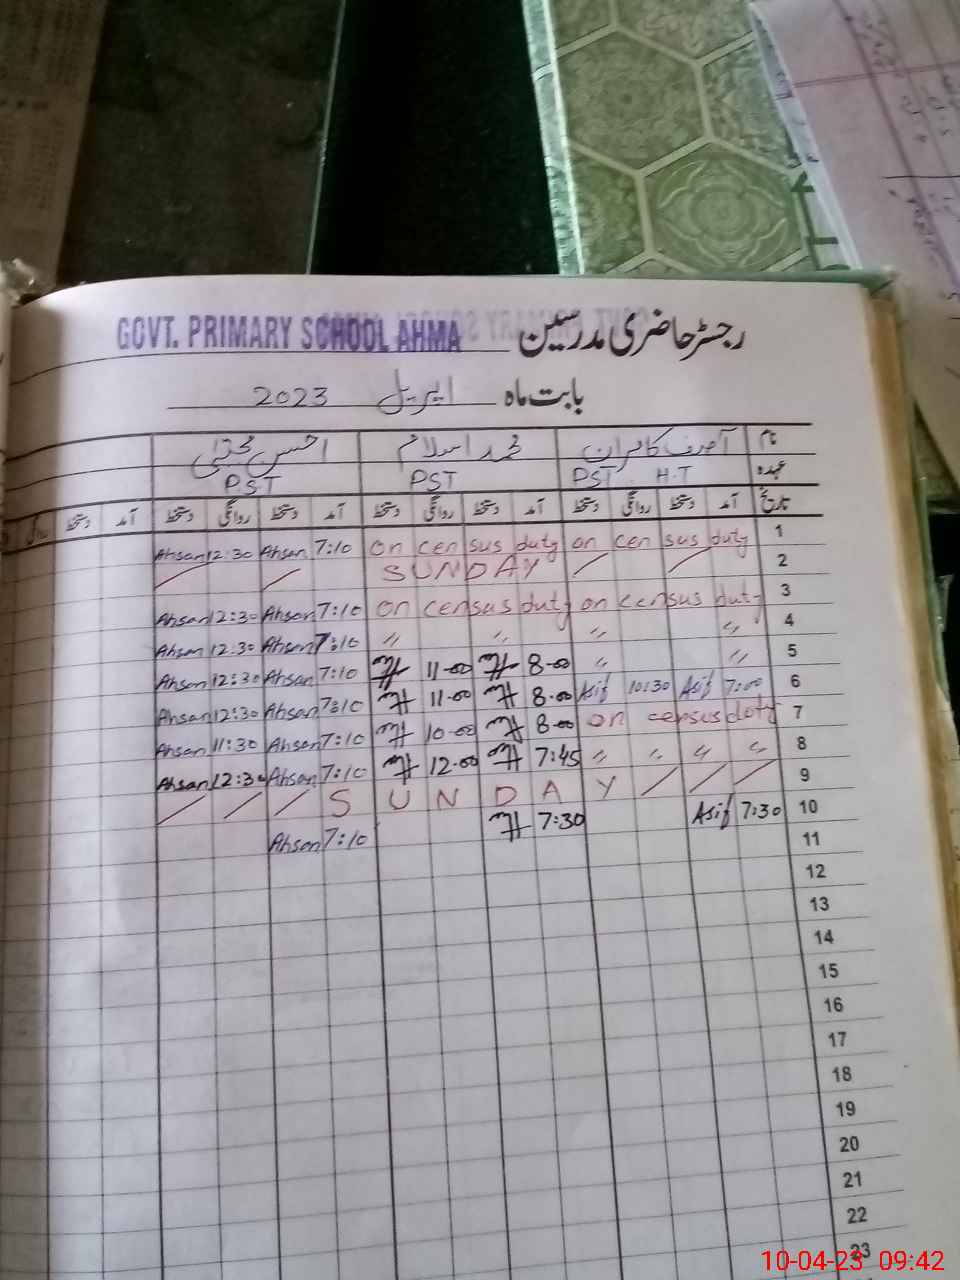 GOVT. PRIMARY SCHOOL AHMA رجسٹر حاضری مدرسین
بابت ماہ اپریل 2023
نام آصف کامران محمد اسلام احسن مجتبیٰ
عہدہ PST H.T PST P.S.T
تاریخ آمد دستخط روانگی دستخط آمد دستخط روانگی دستخط آمد دستخط روانگی دستخط آمد دستخط
Ahsan 12:30 Ahsan 7:10 on census duty on census duty 1
SUNDAY 2
Ahsan 12:30 Ahsan 7:10 on census duty on census duty 3
Ahsan 12:30 Ahsan 7:10 " " " " 4
Ahsan 12:30 Ahsan 7:10 11-00 8-00 " " 5
Ahsan 12:30 Ahsan 7:10 11-00 8-00 Asif 10:30 Asif 7:00 6
Ahsan 11:30 Ahsan 7:10 10-00 8-00 on census duty 7
Ahsan 12:30 Ahsan 7:10 12-00 7:45 " " " " 8
SUNDAY 9
Ahsan 7:10 7:30 Asif 7:30 10
11
12
13
14
15
16
17
18
19
20
21
22
23
10-04-23 09:42